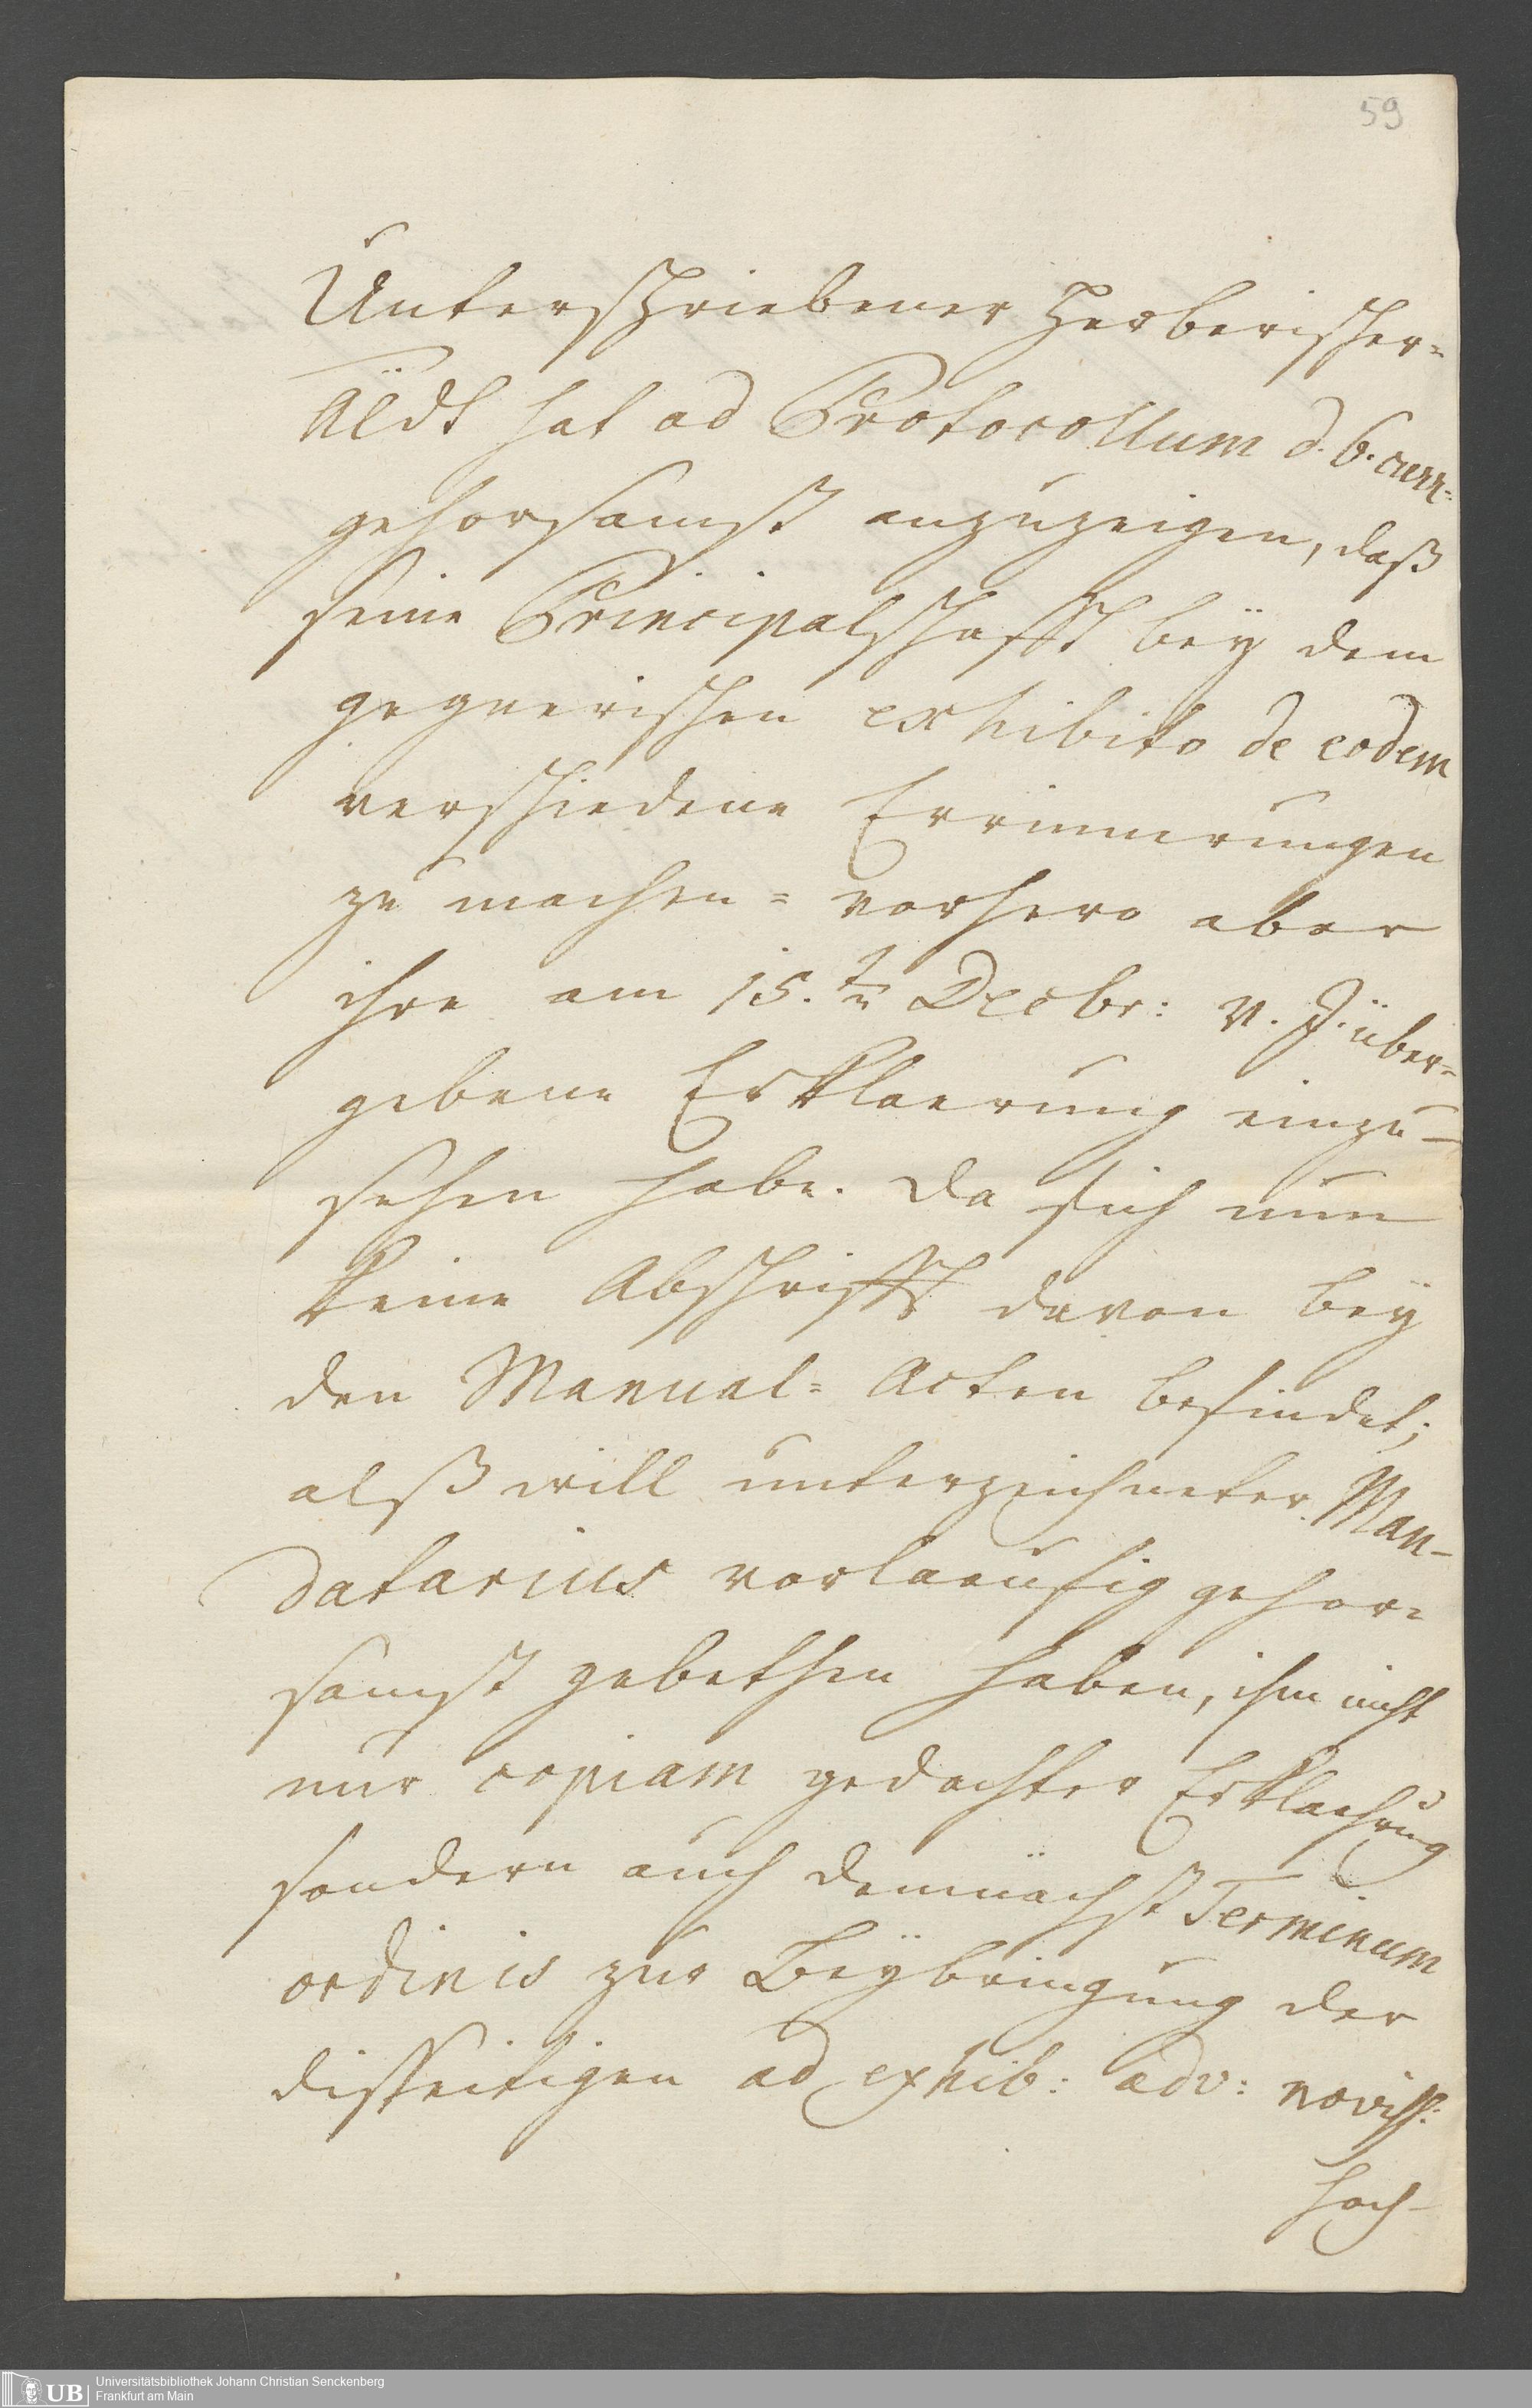 59
Unterschriebener Herberischer=
hat ad Protocollum d. 6. curr:
gehorsamst anzuzeigen, daß
seine Principalschafft beÿ dem
gegnerischen exhibito de eodem
verschiedene Errinnerungen
zu machen = vorhero aber
ihre am 15.ten Decbr: v. J. über=
gebene Erklaerung einzu-
sehen habe. Da sich nun
keine Abschrifft davon beÿ
den Manual= Acten befindet;
alß will unterzeichneter Man-
datarius vorlaeufig gehor=
samst gebethen haben, ihm nicht
nur copiam gedachter Erklaehrung
sondern auch demnächst Terminum
ordinis zur Beÿbringung der
disseitigen ad exhib: adv: noviss:
hoch-
UB
Universitätsbibliothek Johann Christian Senckenberg
Frankfurt am Main